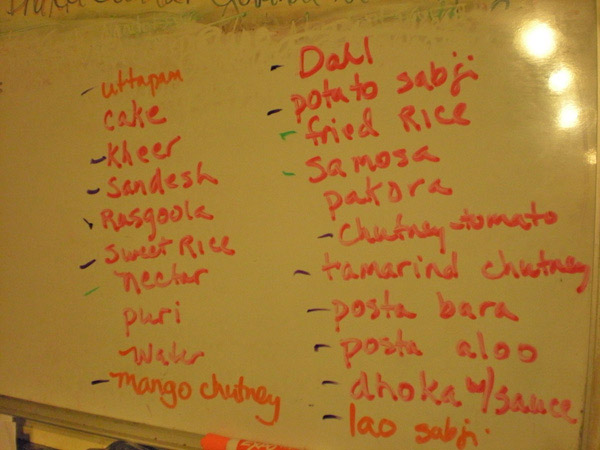 uttapam
cake
Kheer
Sandesh
Rasgoola
Sweet Rice
nectar
puri
Water
mango chutney
Dahl
potato sabji
fried Rice
Samosa
pakora
Chutney-tomato
tamarind chutney
posta bara
posta aloo
dhoka w/sauce
lao sabji